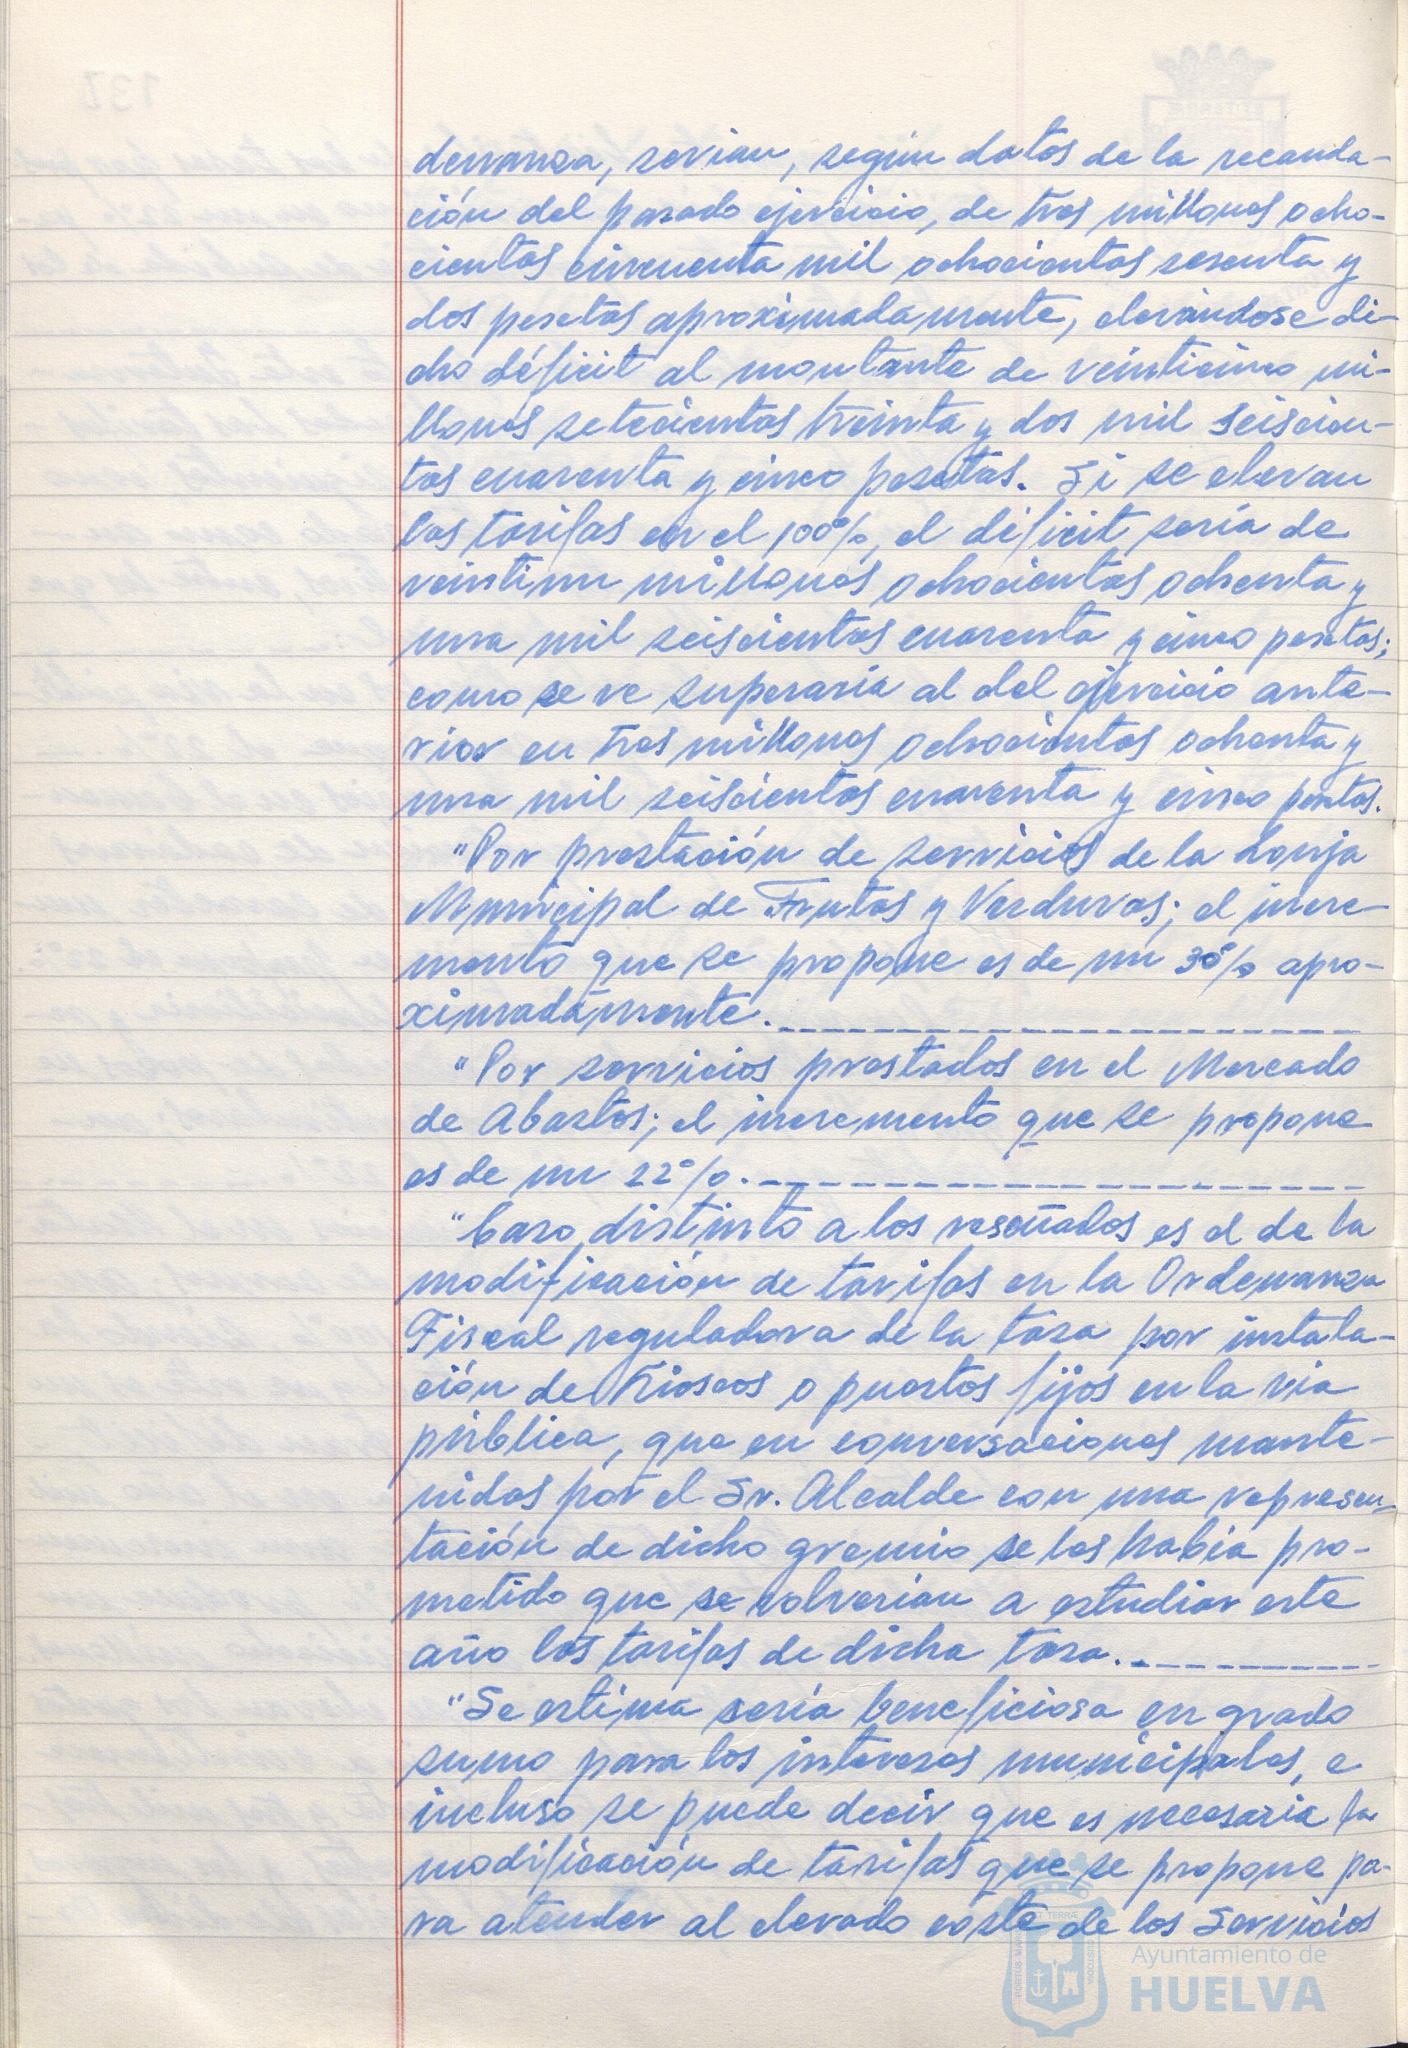 denanza, serian, según datos de la recauda-
ción del pasado ejercicio, de tres millones ocho-
cientas cincuenta mil ochocientas sesenta y
dos pesetas aproximadamente, elevándose di-
cho déficit al montante de veinticinco mi-
llones setecientas treinta y dos mil seiscien-
tas cuarenta y cinco pesetas. Si se elevan
las tarifas en el 100%, el déficit sería de
veintiun millones ochocientas ochenta y
una mil seiscientas cuarenta y cinco pesetas;
como se ve superaría al del ejercicio ante-
rior en tres millones ochocientas ochenta y
una mil seiscientas cuarenta y cinco pesetas.
"Por prestación de servicios de la Lonja
Municipal de Frutas y Verduras; el incre-
mento que se propone es de un 30% apro-
ximadamente.
"Por servicios prestados en el Mercado
de Abastos; el incremento que se propone
es de un 22%.
"Caso distinto a los reseñados es el de la
modificación de tarifas en la Ordenanza
Fiscal reguladora de la tasa por instala-
ción de Kioscos o puestos fijos en la via
pública, que en conversaciones mante-
nidas por el Sr. Alcalde con una represen-
tación de dicho gremio se les había pro-
metido que se volverian a estudiar este
año las tarifas de dicha tasa.
"Se estima sería beneficiosa en grado
sumo para los intereses municipales, e
incluso se puede decir que es necesaria la
modificación de tarifas que se propone pa-
ra atender al elevado coste de los Servicios
Ayuntamiento de
HUELVA